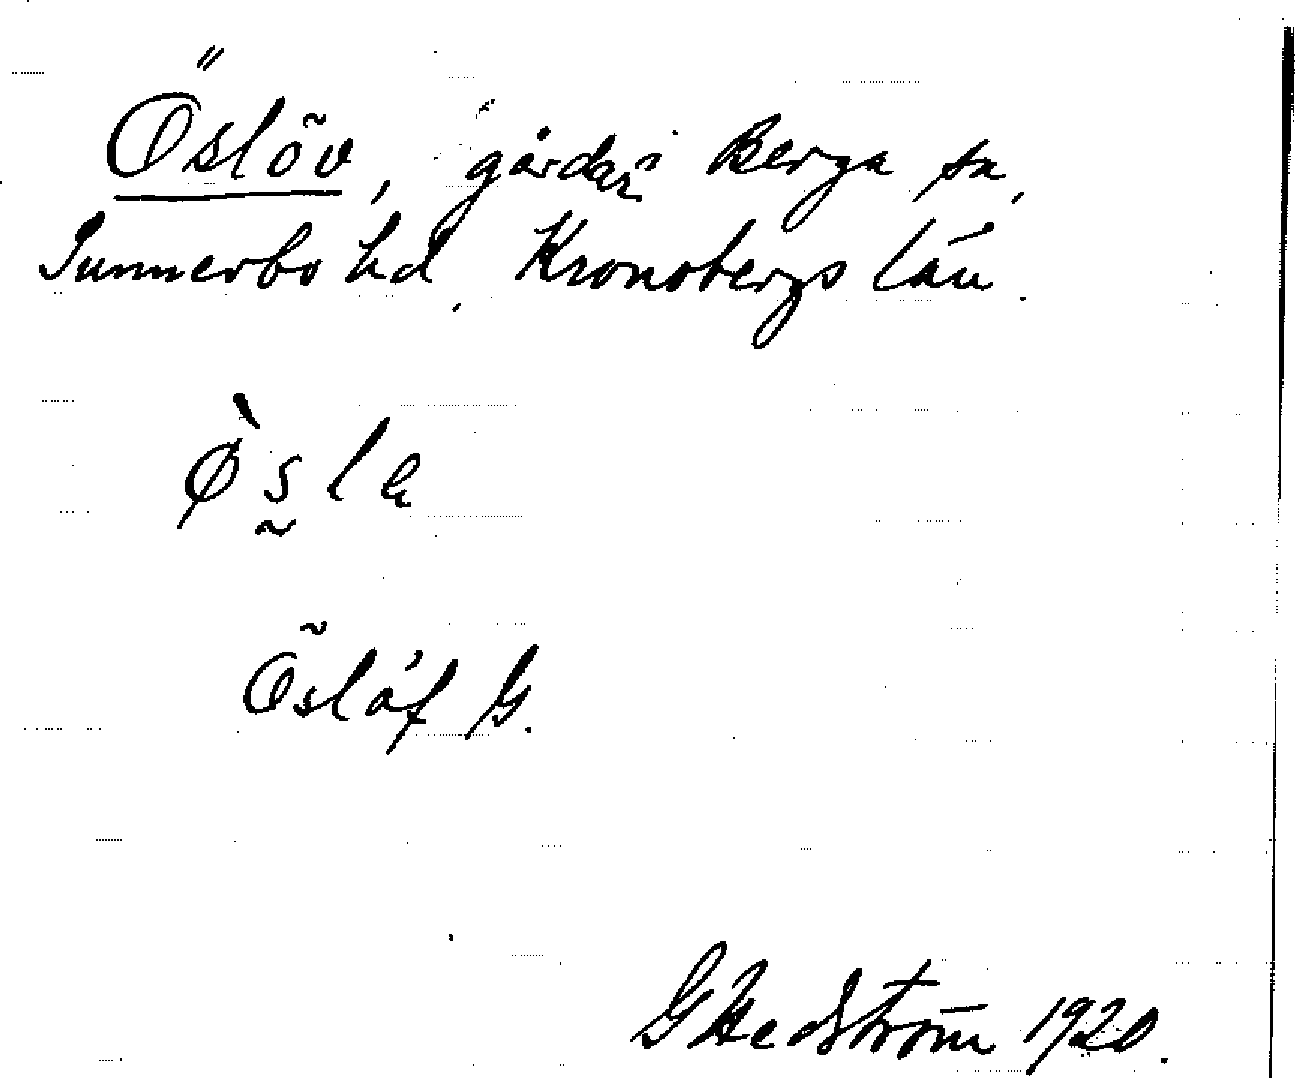 Öslöv, gårdar i Berga sn,
Sunnerbo hd, Kronobergs län.
ø̀s̰lɐ
Öslöf G.
G Hedström 1920.